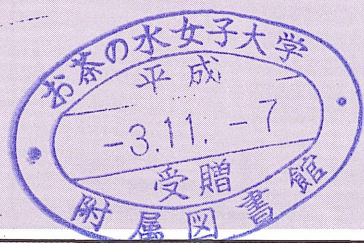 お茶の水女子大学
平成
-3.11.-7
受贈
附属図書館